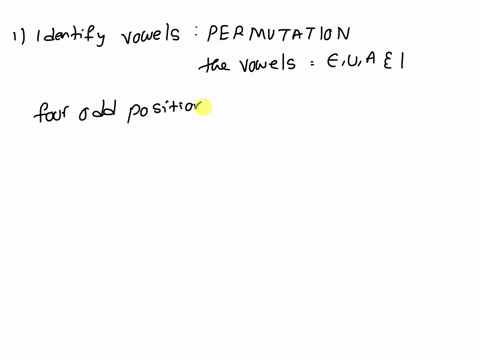 1) Identify vowels : PERMUTATION
the vowels : E, U, A & I
four odd position